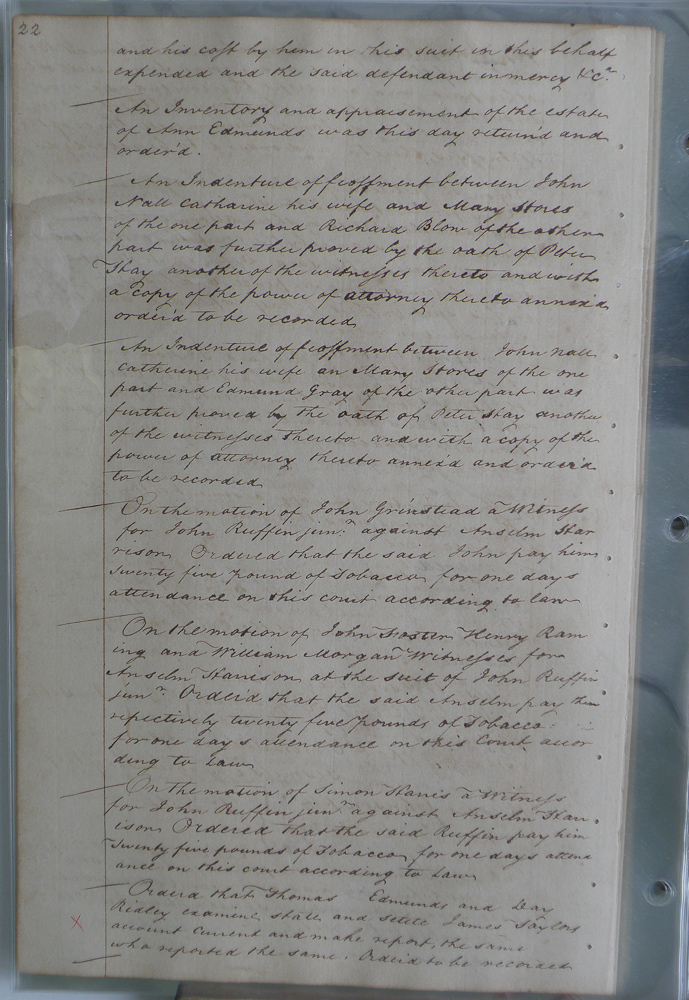 22
and his cost by him in his suit in this behalf
expended and the said defendant in mercy &c.ª
An Inventory and appraisement of the estate
of Ann Edmunds was this day return'd and
order'd.
An Indenture of feoffment between John
Nall Catharine his wife and Mary Stores
of the one part and Richard Blow of the other
part was further proved by the oath of Peter
Hay another of the witnesses thereto and with
a copy of the power of attorney thereto annex'd
order'd to be recorded
An Indenture of feoffment between John Nall
Catherine his wife an Mary Stores of the one
part and Edmund Gray of the other part was
further proved by the oath of Peter Hay another
of the witnesses thereto and with a copy of the
power of attorney thereto annex'd and order'd
to be recorded
On the motion of John Grinstead a Witness
for John Ruffin jun.r against Anselm Har
rison Ordered that the said John pay him
twenty five pound of Tobacco for one days
attendance on this court according to law
On the motion of John Foster Henry Ram
ing and William Morgan Witnesses for
Anselm Harrison at the suit of John Ruffin
jun.r Order'd that the said Anselm pay them
repectively twenty five pounds of Tobacco
for one day's attendance on this Court accor
ding to Law
On the motion of Simon Harris a Witness
for John Ruffin jun.r against Anselm Harr
ison Ordered that the said Ruffin pay him
Twenty five pounds of Tobacco for one days attend
ance on this court according to Law
Orderd that Thomas Edmunds and Day
Ridley examine, state, and settle James Taylors
account Current and make report, the same
who reported the same. Order'd to be recorded